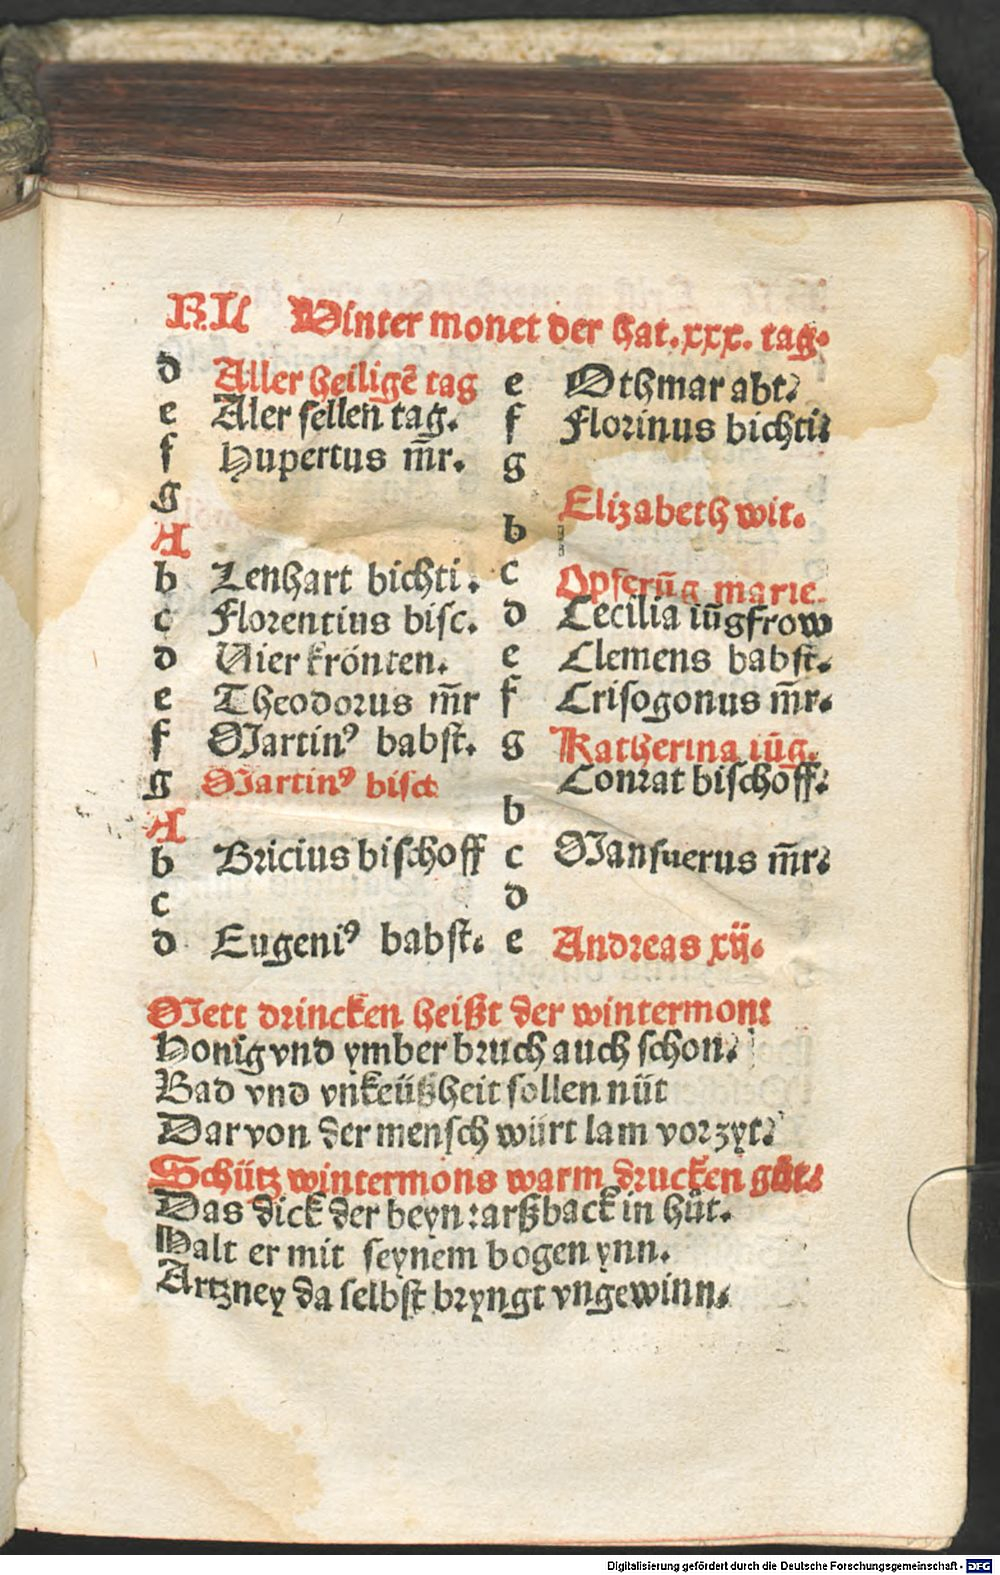 KL Winter monet der hat .xxx. tag.
d Aller heiligē tag
e Aler sellen tag.
f Hupertus m̄r.
g
A
b Lenhart bichti.
c Florentius bisc.
d Vier krönten.
e Theodorus m̄r
f Martinꝰ babst.
g Martinꝰ bisch
A
b Bricius bischoff
c
d Eugeniꝰ babst.
e Othmar abt.
f Florinus bichti.
g
Elizabeth wit.
b
c Opferūg marie.
d Cecilia iūgfrow
e Clemens babst.
f Crisogonus m̄r.
g Katherina iūg.
Conrat bischoff.
b
c Mansuerus m̄r.
d
e Andreas xij.
Mett drincken heißt der wintermont
Honig vnd ymber bruch auch schon.
Bad vnd vnkeüßheit sollen nüt
Dar von der mensch würt lam vor zyt.
Schütz wintermons warm drucken gůt.
Das dick der beyn: arßback in hůt.
Halt er mit seynem bogen ynn.
Artzney da selbst bryngt vngewinn.
Digitalisierung gefördert durch die Deutsche Forschungsgemeinschaft - DFG